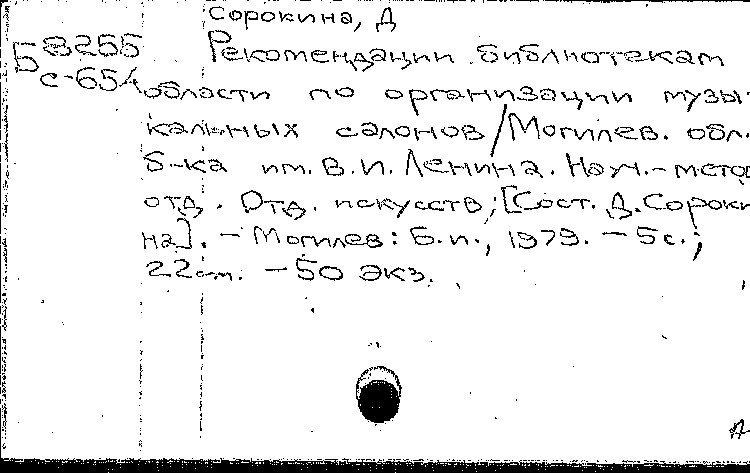 Сорокина, Д
Б 8255
с-654
Рекомендации библиотекам
области по организации музы-
кальных салонов/Могилев. обл.
б-ка им. В.И. Ленина. Науч.-метод
отд. Отд. искусств; [Сост. Д. Сороки
на]. - Могилев: Б.и., 1979. - 5с.;
22см. - 50 экз.